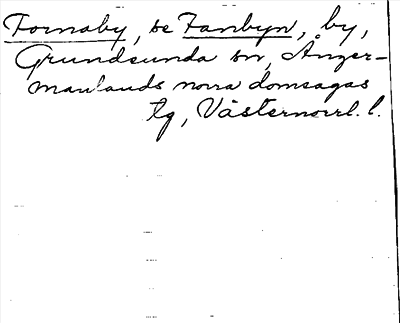 Fornaby, se Fanbyn, by,
Grundsunda sn, Ånger-
manlands norra domsagas
tg, Västernorrl. l.